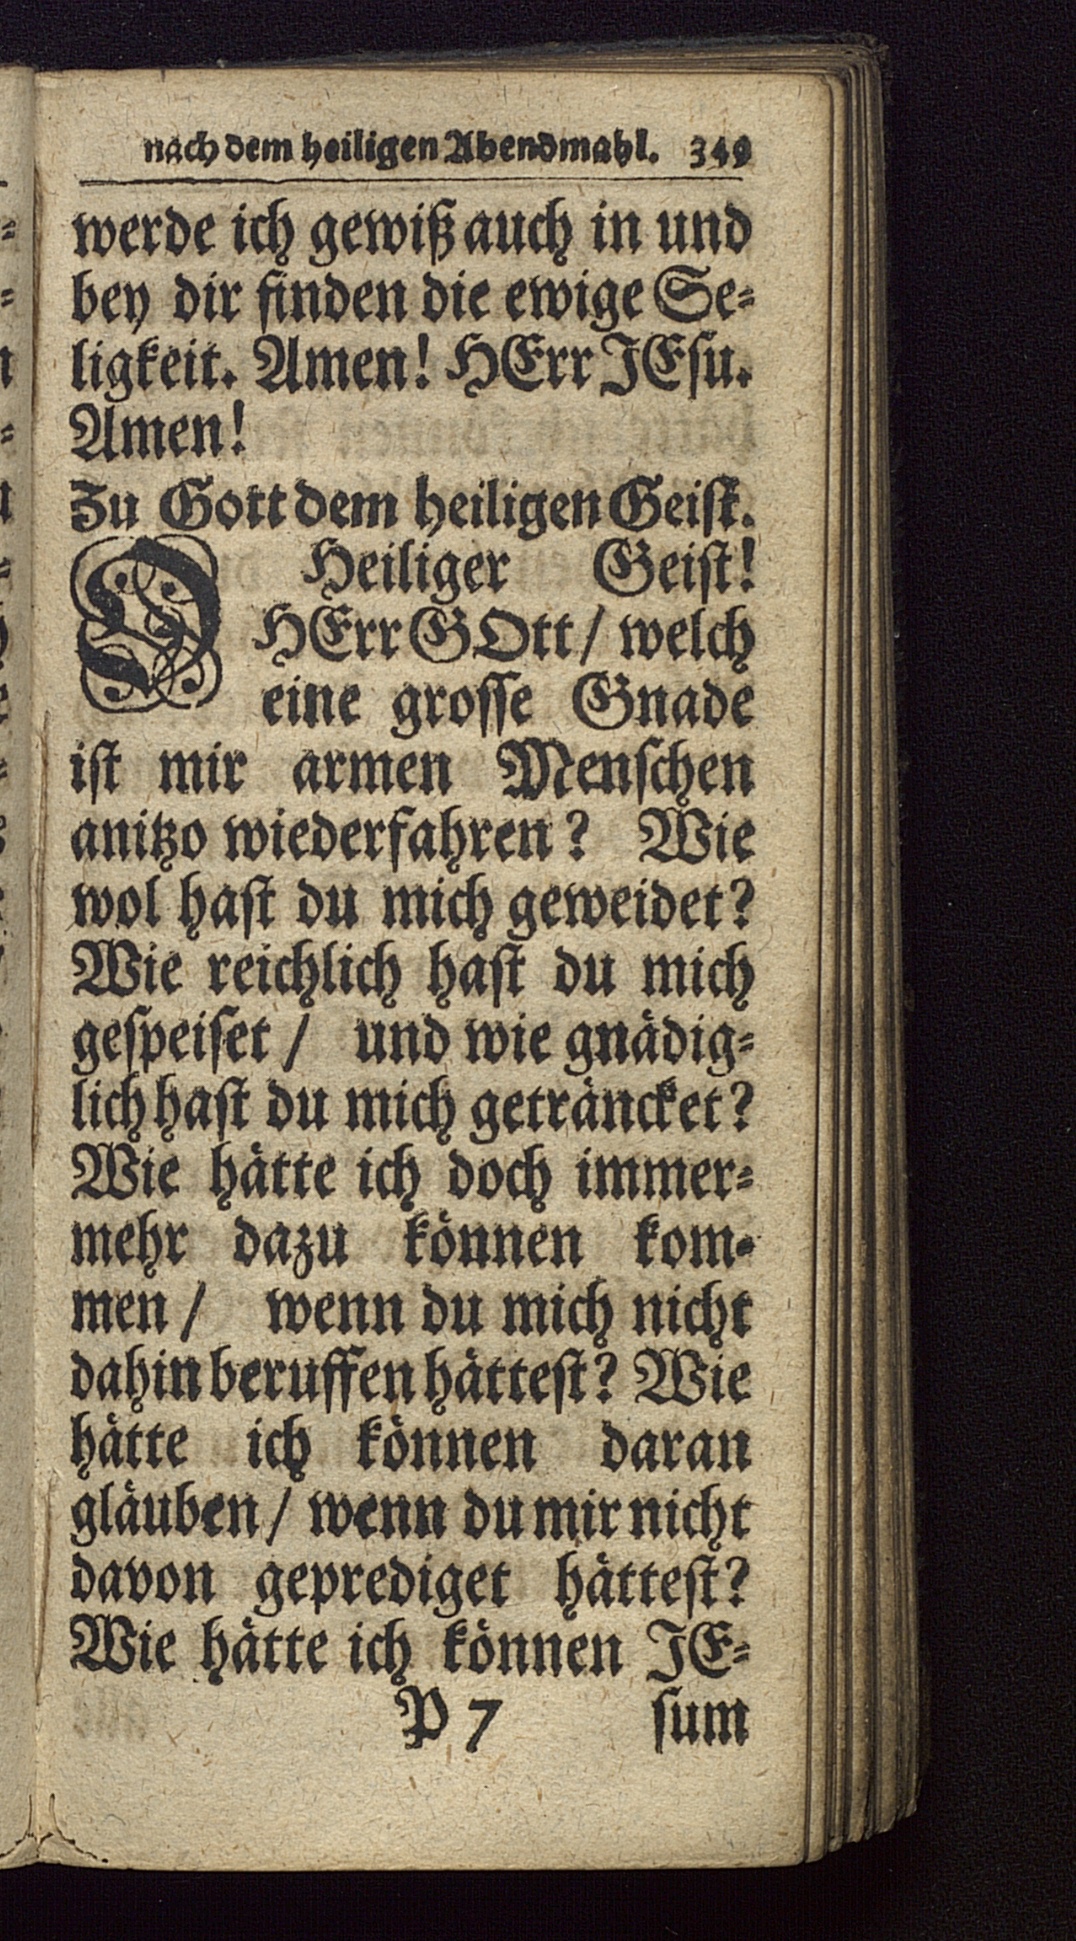 nach dem heiligen Abendmahl. 349
werde ich gewiß auch in und
bey dir finden die ewige Se-
ligkeit. Amen! HErr JEsu.
Amen!
Zu Gott dem heiligen Geist.
O Heiliger Geist!
HErr GOtt / welch
eine grosse Gnade
ist mir armen Menschen
anitzo wiederfahren? Wie
wol hast du mich geweidet?
Wie reichlich hast du mich
gespeiset / und wie gnädig-
lich hast du mich geträncket?
Wie hätte ich doch immer-
mehr dazu können kom-
men / wenn du mich nicht
dahin beruffen hättest? Wie
hätte ich können daran
gläuben / wenn du mir nicht
davon geprediget hättest?
Wie hätte ich können JE-
P 7 sum